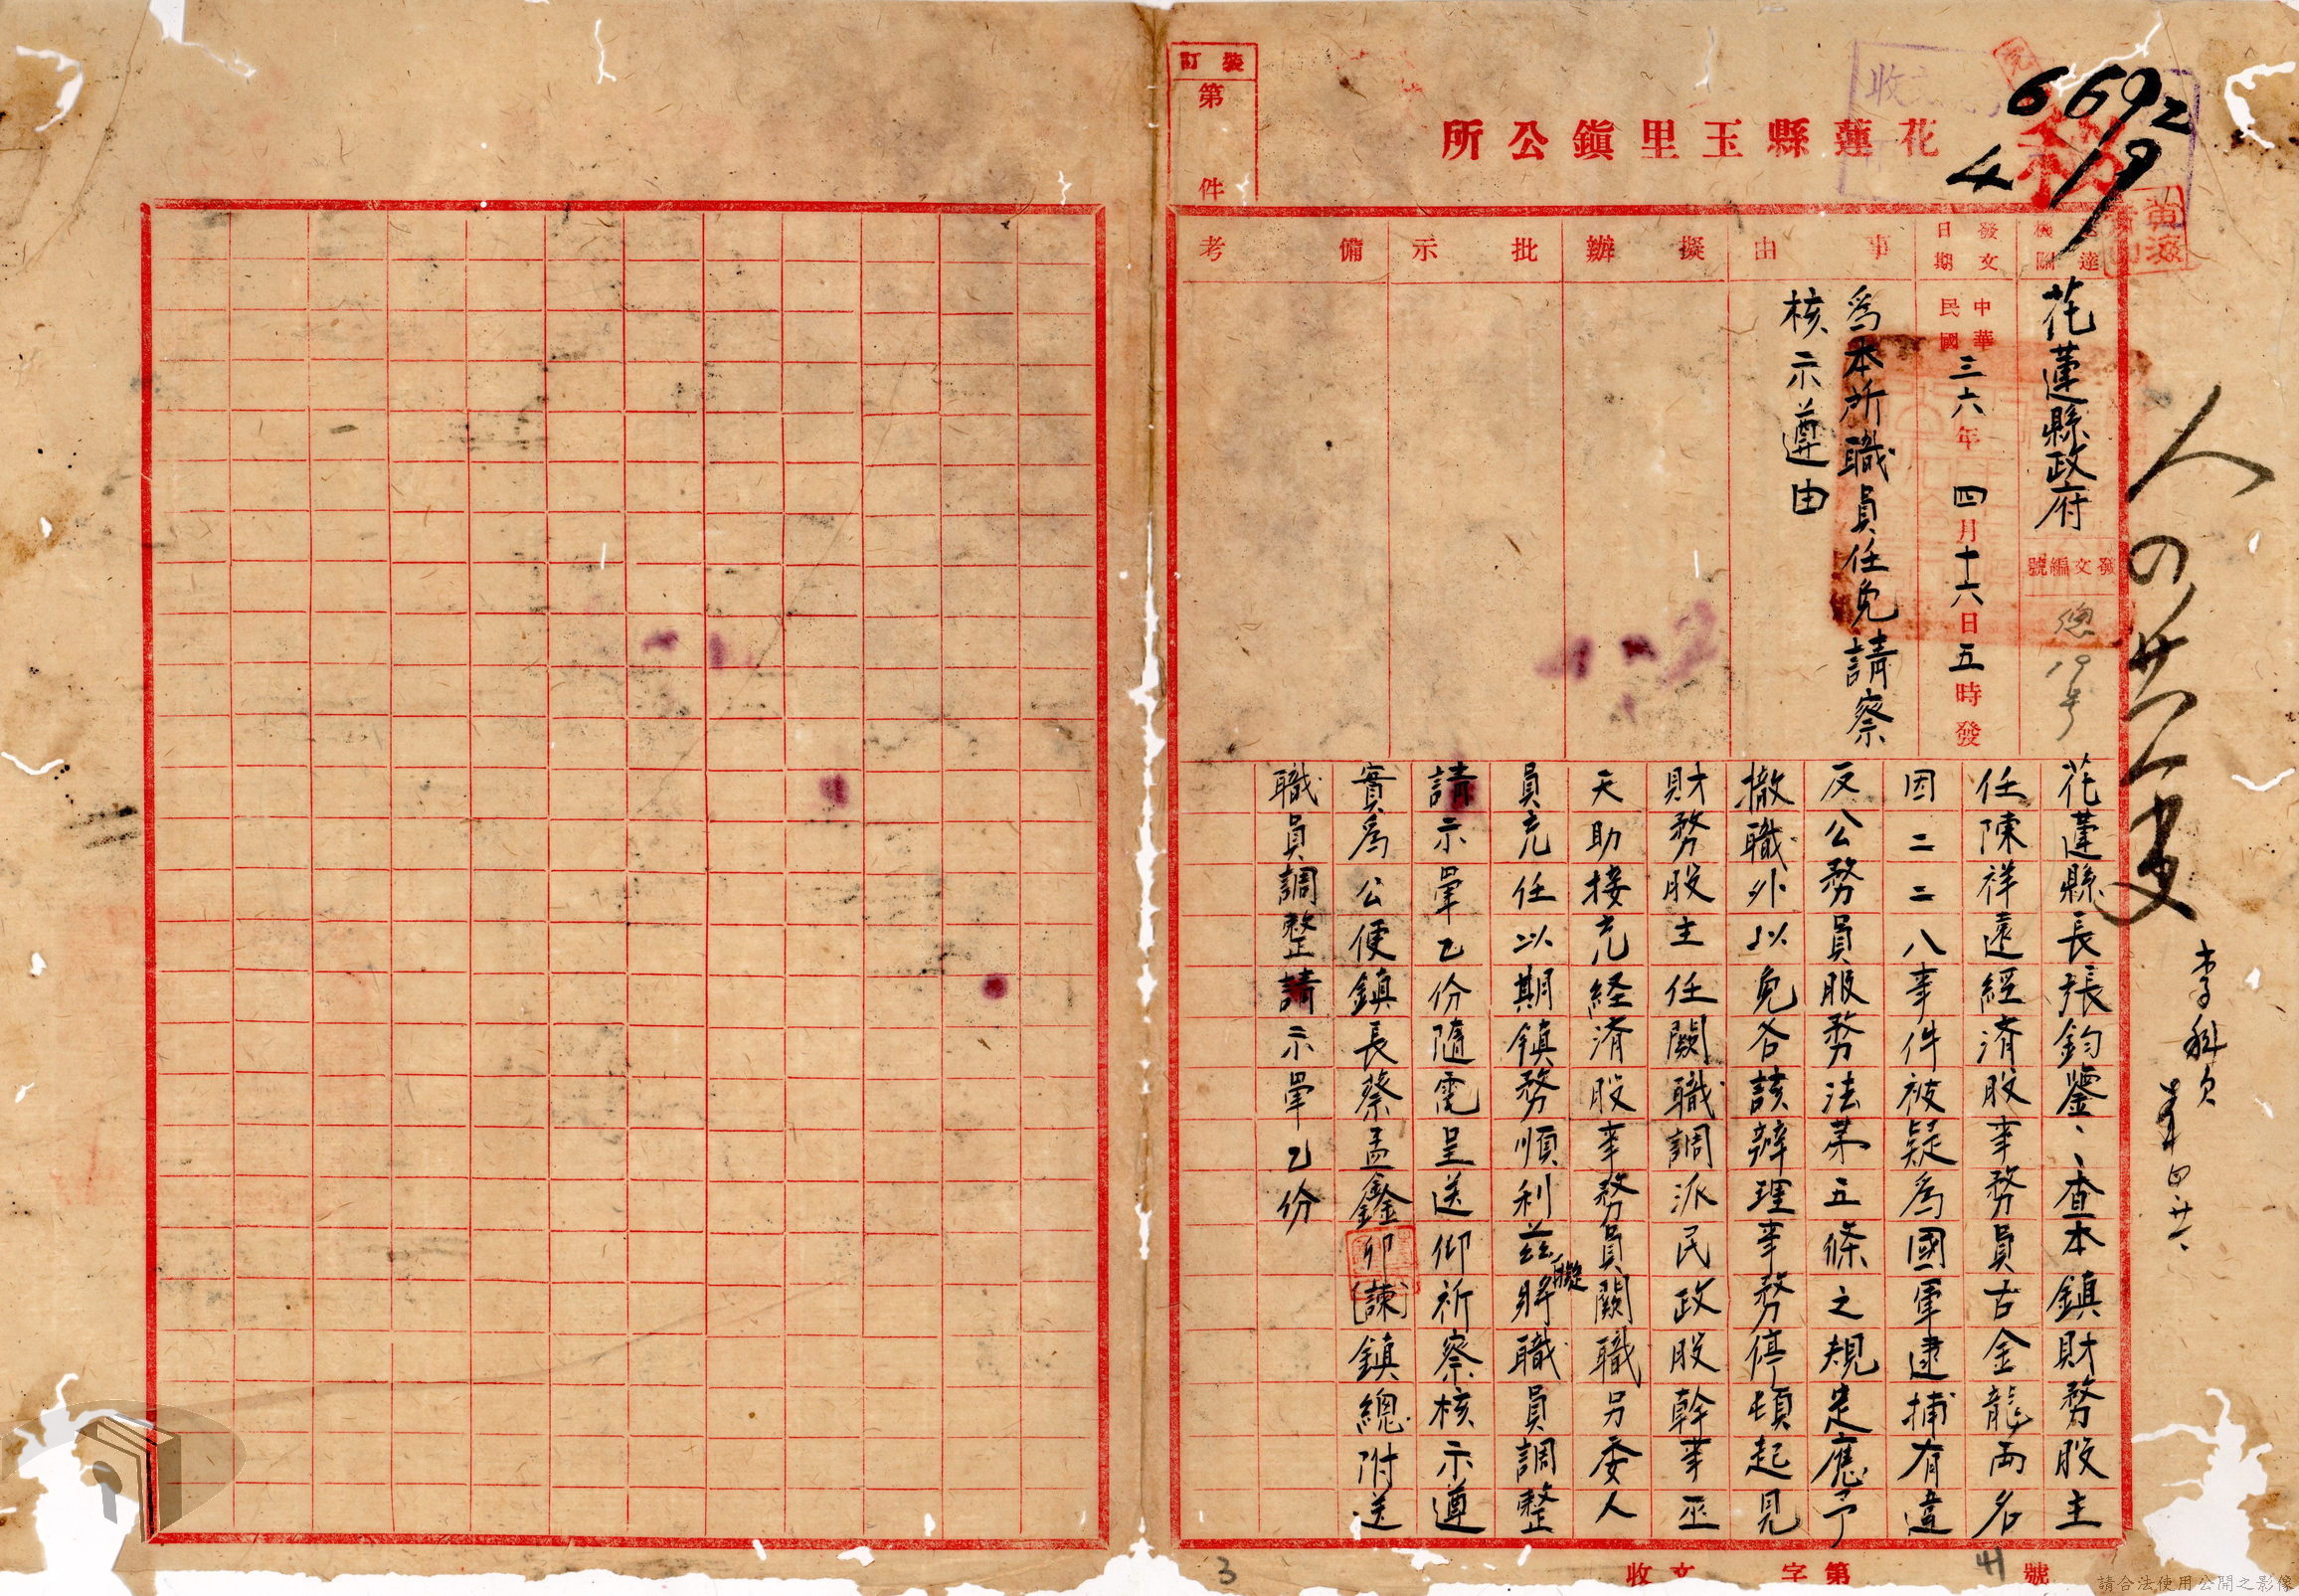 裝訂
第 件
花蓮縣玉里鎮公所
6692
4/19
收
秘
送達機關
花蓮縣政府
發文編號
總19号
發文日期
中華民國三六年四月十六日五時發
事由
為本所職員任免請察
核示遵由
擬辦
批示
備考
花蓮縣長張鈞鑒、查本鎮財務股主
任陳祥遠經済股事務員古金龍両名
因二二八事件被疑為國軍逮捕有違
反公務員服務法第五條之規定應予
撤職外以免各該辦理事務停頓起見
財務股主任闕職調派民政股幹事巫
天助接充経済股事務員闕職另委人
員充任以期鎮務順利茲將擬職員調整
請示單乙份隨電呈送仰祈察核示遵
實為公便鎮長蔡孟鑫卯(諫)鎮總附送
職員調整請示單乙份
李科員
四廿一
收文 字第 41 號
3
請合法使用公開之影像